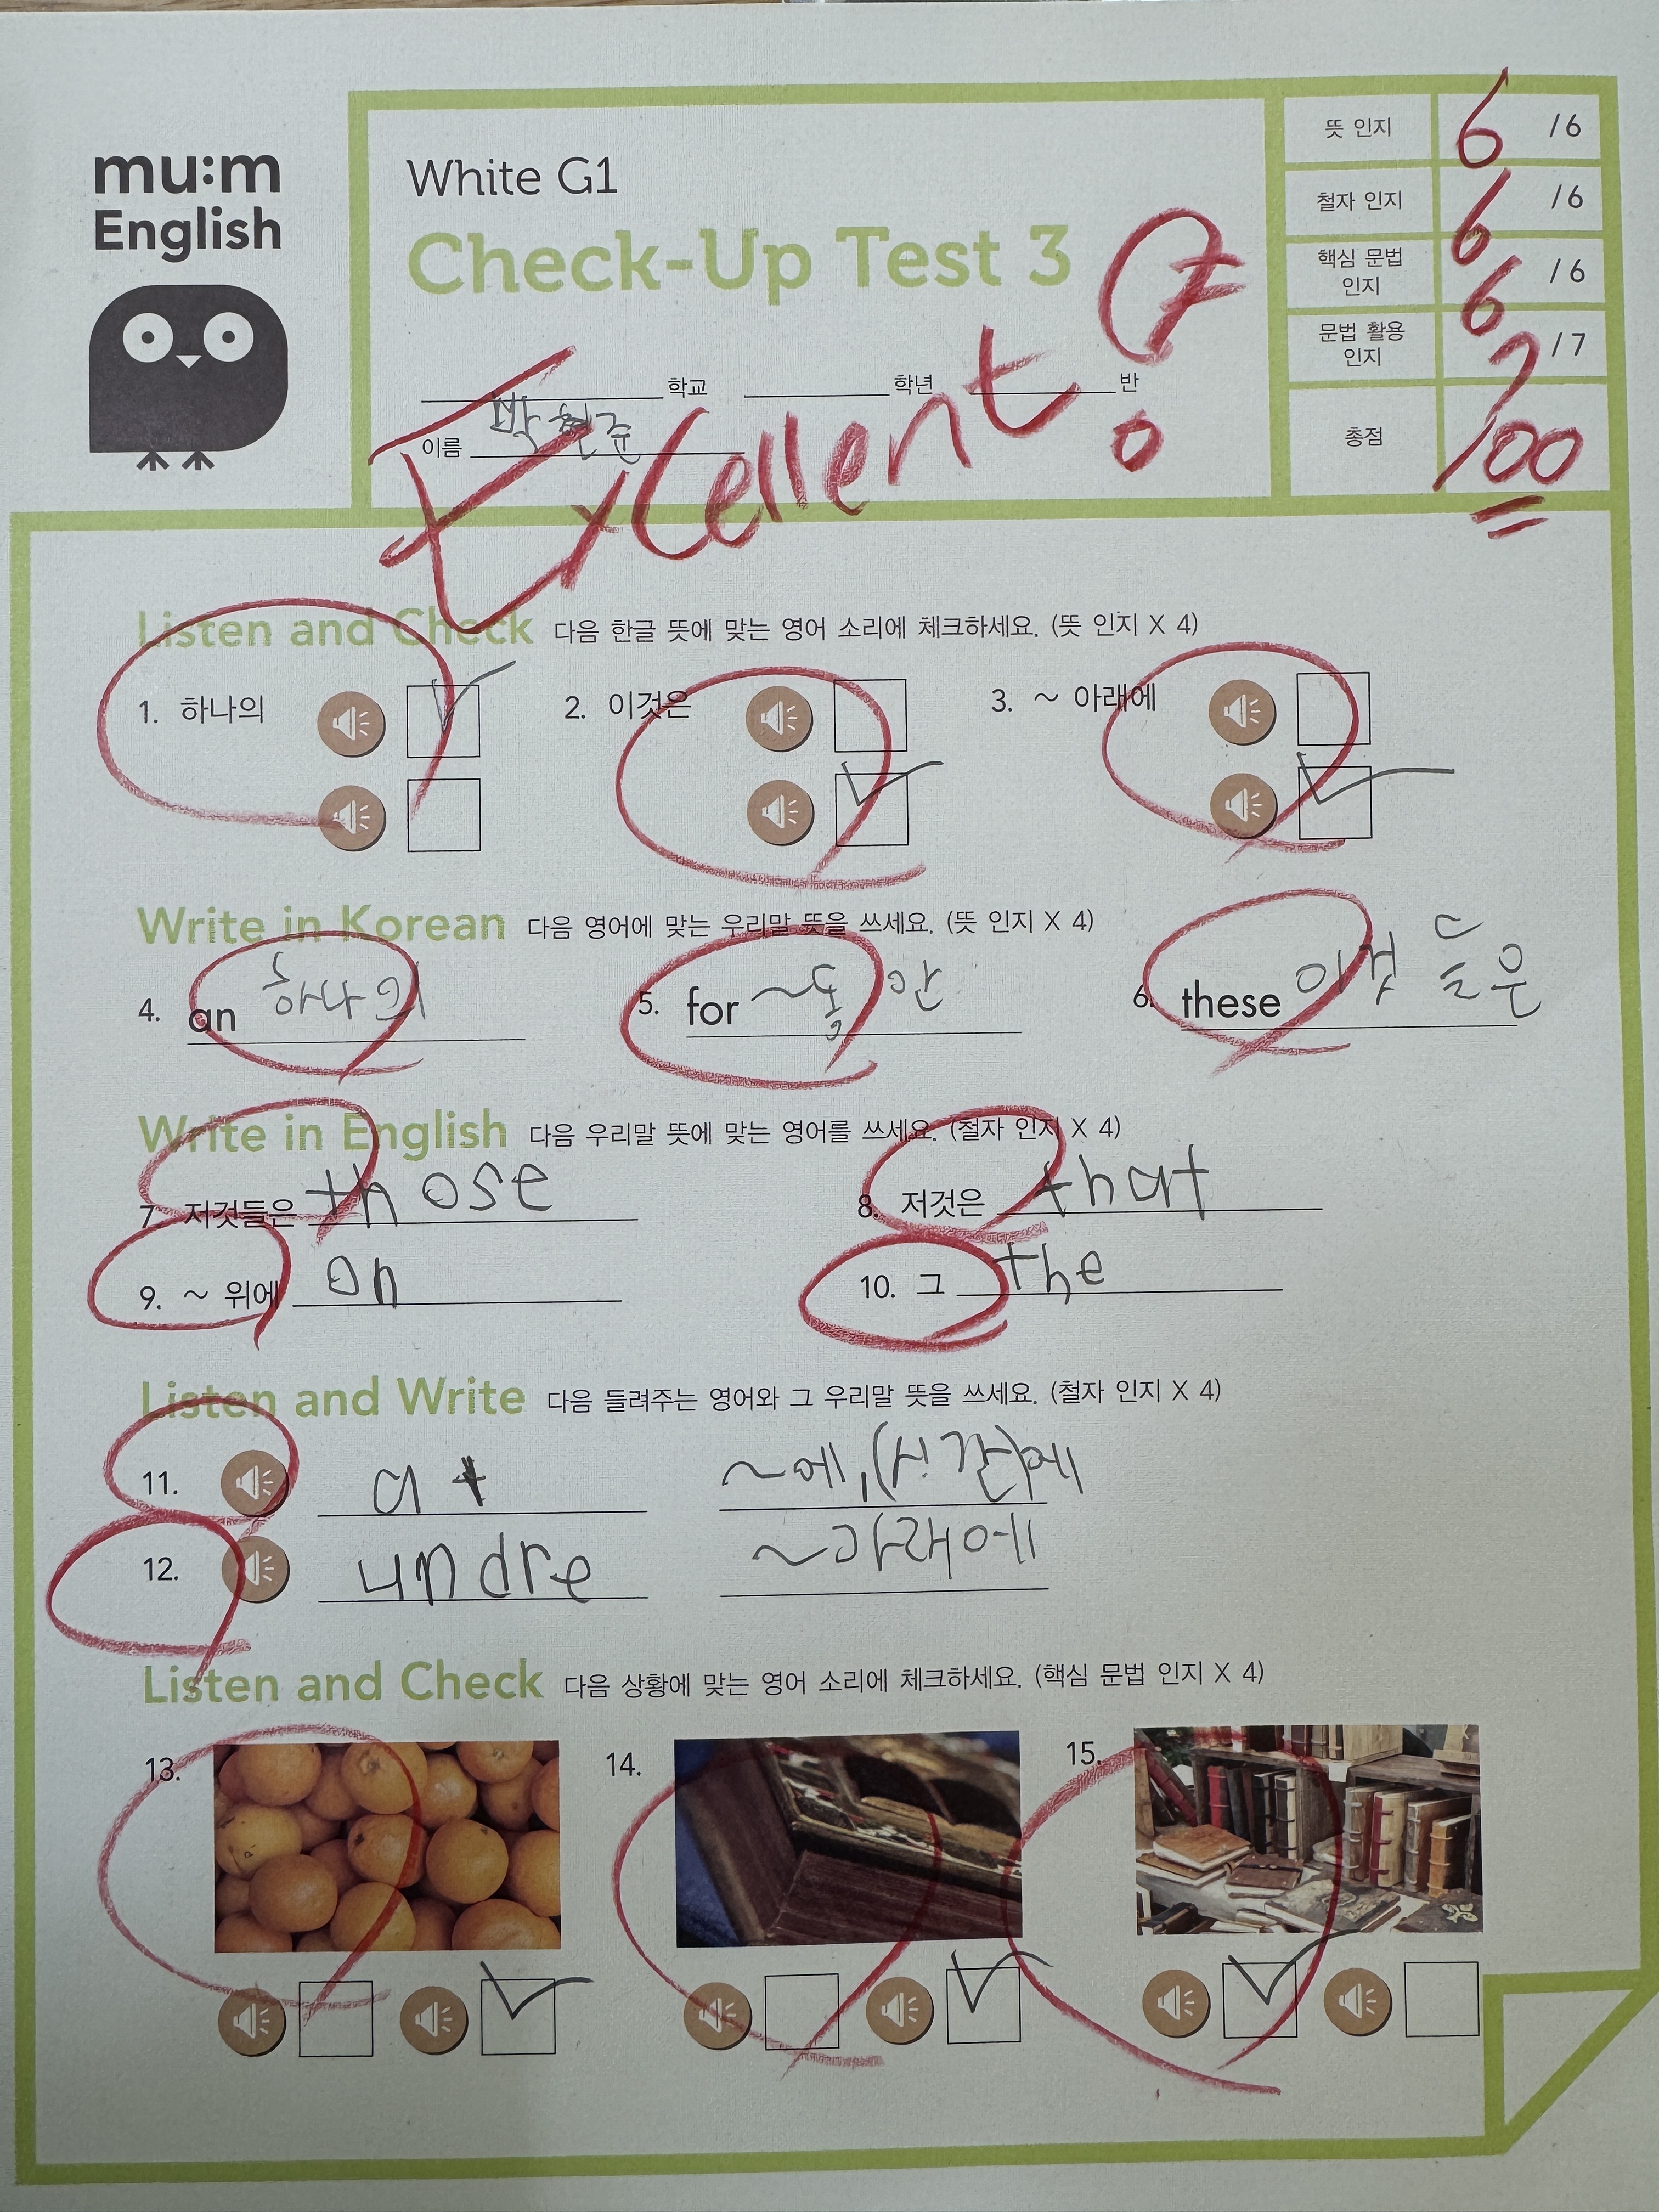 mu:m
English
White G1
Check-Up Test 3
학교 학년 반
이름 박현준
Excellent!
뜻 인지 6 /6
철자 인지 6 /6
핵심 문법 인지 6 /6
문법 활용 인지 7 /7
총점 100
Listen and Check 다음 한글 뜻에 맞는 영어 소리에 체크하세요. (뜻 인지 X 4)
1. 하나의 2. 이것은 3. ~ 아래에
Write in Korean 다음 영어에 맞는 우리말 뜻을 쓰세요. (뜻 인지 X 4)
4. an 하나의 5. for ~동안 6. these 이것들은
Write in English 다음 우리말 뜻에 맞는 영어를 쓰세요. (철자 인지 X 4)
7. 저것들은 those 8. 저것은 that
9. ~ 위에 on 10. 그 the
Listen and Write 다음 들려주는 영어와 그 우리말 뜻을 쓰세요. (철자 인지 X 4)
11. at ~에,(시간)에
12. undre ~아래에
Listen and Check 다음 상황에 맞는 영어 소리에 체크하세요. (핵심 문법 인지 X 4)
13. 14. 15.